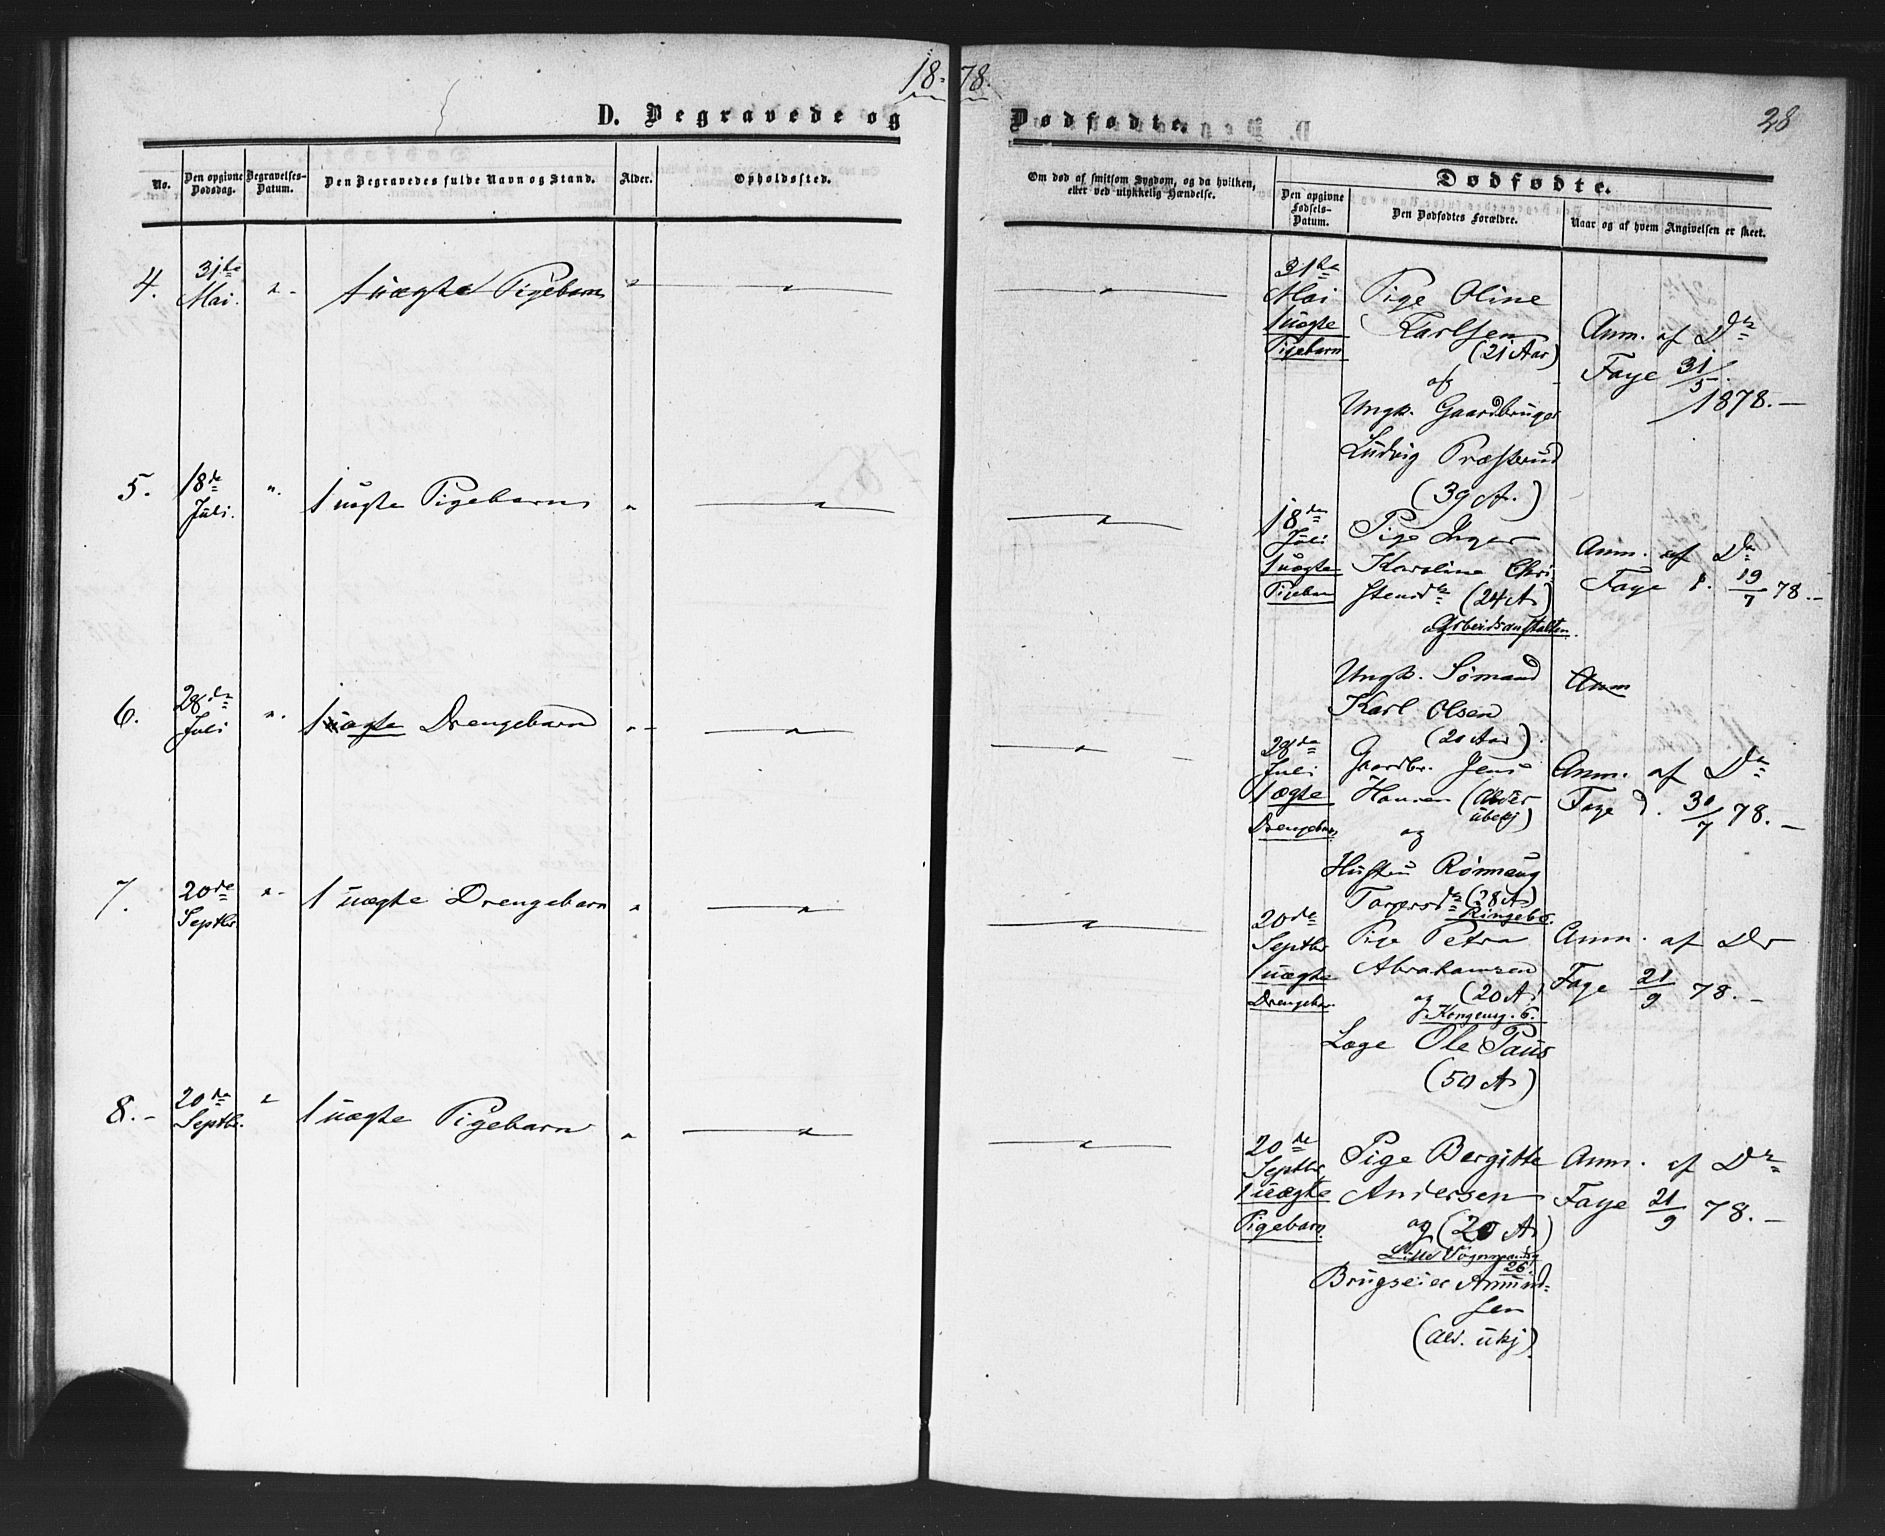 18-78.
28
D. Begravede og
Dødfødte.
No.
Den opgivne Dødsdag.
Begravelses-Datum.
Den Begravedes fulde Navn og Stand.
Alder.
Opholdssted.
Om død af smitsom Sygdom, og da hvilken,
eller ved ulykkelig Hændelse.
Dødfødte.
Den opgivne Fødsels-Datum.
Den Dødfødtes Forældre.
Naar og af hvem Angivelsen er skeet.
4.
31te
Mai.
"
1 uægte Pigebarn
"
"
"
31te
Mai
1 uægte
Pigebarn
Pige Oline
Karlsen
(21 Aar)
af
Ungk. Gaardbruger
Ludvig Præsterud
(39 A.)
Anm. af Dr
Faye 31/5
1878.-
5.
18de
Juli.
"
1 uægte Pigebarn
"
"
"
18de
Juli
1 uægte
Pigebarn
Pige Inger
Karoline Chri-
stensdr (24 A)
og Arbeidsanstalten.
Ungk. Sømand
Karl Olsen
(20 Aar)
Anm. af Dr
Faye d. 19/7 78.-
Anm
6.
28de
Juli
"
1 uægte Drengebarn
"
"
"
28de
Juli
1 ægte
Drengebarn
Gaardbr. Jens
Hansen (Alder
ubekj)
og
Hustru Rønnaug
Torersdr (28 A)
Ringebo.
Anm. af Dr
Faye d. 30/7 78.-
7.
20de
Septbr.
"
1 uægte Drengebarn
"
"
"
20de
Septbr
1 uægte
Drengebar.
Pige Petra
Abrahamsen
og (20 A)
Kongensg. 6.
Læge Ole Paus
(50 A)
Anm. af Dr
Faye 21/9 78.-
8.-
20de
Septbr.
"
1 uægte Pigebarn
"
"
"
20de
Septbr
1 uægte
Pigebarn.
Pige Bergitte
Andersen
og (20 A)
Lille Vognmandsg
26.
Brugseier Amund-
sen
(Ald. ukj).
Anm. af Dr
Faye 21/9 78.-